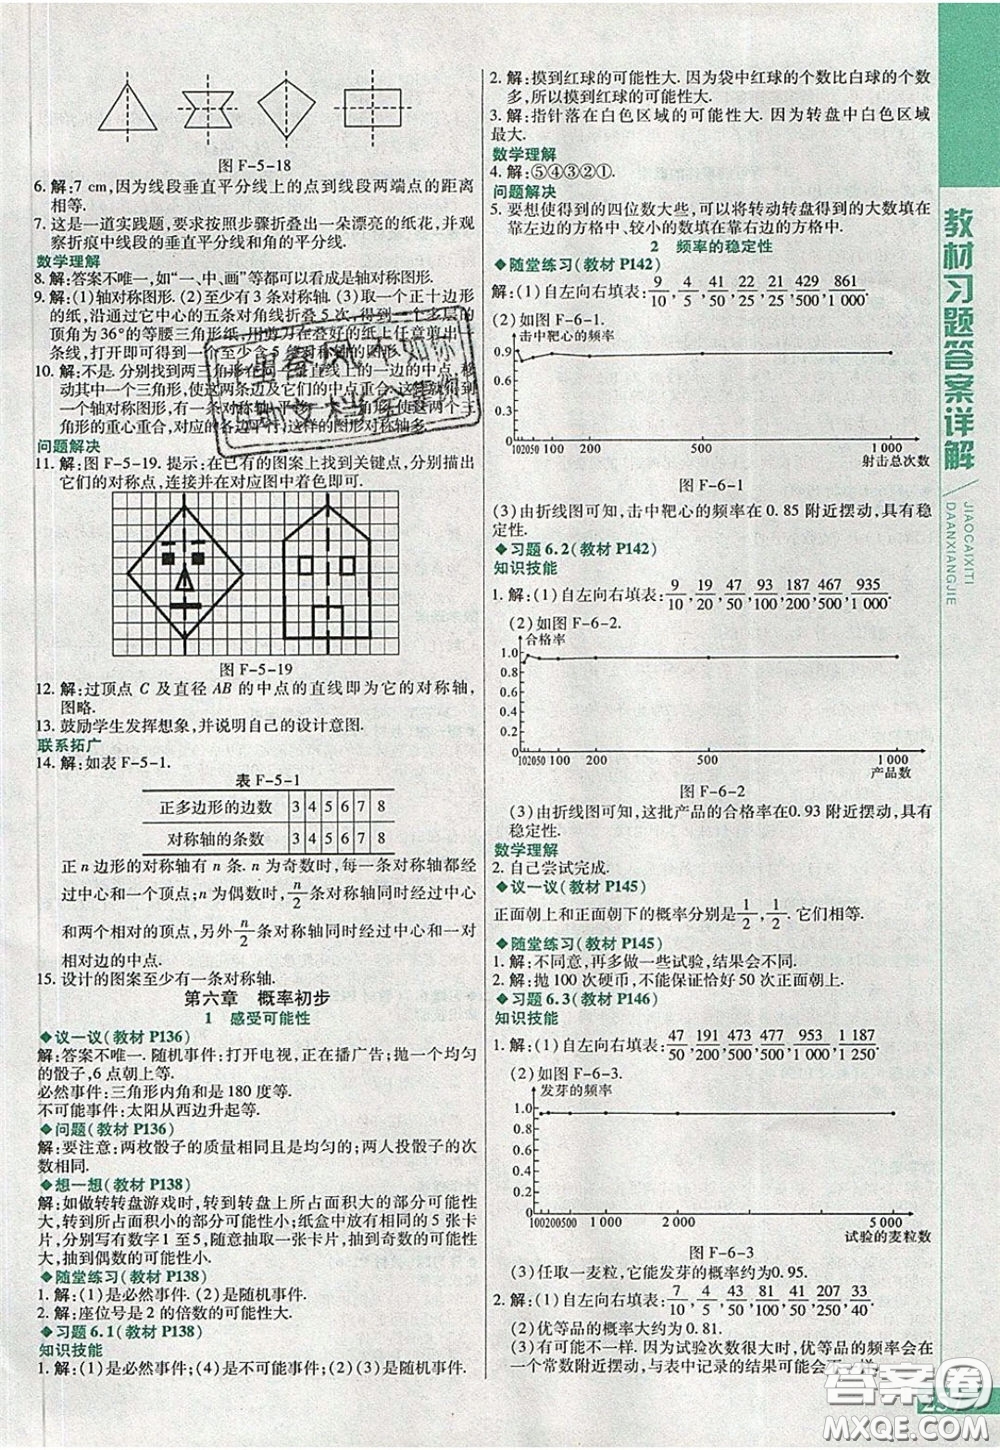 图 F-5-18
6. 解:7 cm,因为线段垂直平分线上的点到线段两端点的距离
相等.
7. 这是一道实践题,要求按照步骤折叠出一朵漂亮的纸花,并观
察折痕中线段的垂直平分线和角的平分线.
数学理解
8. 解:答案不唯一,如“一、中、画”等都可以看成是轴对称图形.
9. 解:(1)轴对称图形.(2)至少有3条对称轴.(3)取一个正十边形
的纸,沿通过它中心的五条对角线折叠5次,得到一个多层的
顶角为36°的等腰三角形纸,用剪刀在叠好的纸上任意剪出一
条线,打开即可得到一个至少含5条对称轴的图形.
10. 解:不是.分别找到两三角形
一边的中点,移
动其中一个三角形,使这两条边及它们的中点重合,这就得到
一个轴对称图形,有一条对称轴;平移一个三角形,使这两个三
角形的重心重合,对应的各边互相平行,这样的图形对称轴多.
问题解决
11. 解:图 F-5-19. 提示:在已有的图案上找到关键点,分别描出
它们的对称点,连接并在对应图中着色即可.
图 F-5-19
12. 解:过顶点 C 及直径 AB 的中点的直线即为它的对称轴,
图略.
13. 鼓励学生发挥想象,并说明自己的设计意图.
联系拓广
14. 解:如表 F-5-1.
表 F-5-1
正多边形的边数 3 4 5 6 7 8
对称轴的条数 3 4 5 6 7 8
正 n 边形的对称轴有 n 条. n 为奇数时,每一条对称轴都经
过中心和一个顶点;n 为偶数时,n/2条对称轴同时经过中心
和两个相对的顶点,另外n/2条对称轴同时经过中心和两条相
对边的中点.
15. 设计的图案至少有一条对称轴.
第六章 概率初步
1 感受可能性
◆议一议(教材 P136)
解:答案不唯一. 随机事件:打开电视,正在播广告;抛一个均匀
的骰子,6点朝上等.
必然事件:三角形内角和是 180 度等.
不可能事件:太阳从西边升起等.
◆问题(教材 P136)
解:要注意:两枚骰子的质量相同且是均匀的;两人投骰子的次
数相同.
◆想一想(教材 P138)
解:如做转转盘游戏时,转到转盘上所占面积大的部分可能性
大,转到所占面积小的部分可能性小;纸盒中放有相同的 5 张卡
片,分别写有数字 1 至 5,随意抽出一张卡片,抽到奇数的可能性
大,抽到偶数的可能性小.
◆随堂练习(教材 P138)
1. 解:(1)是必然事件.(2)是随机事件.
2. 解:座位号是 2 的倍数的可能性大.
◆习题 6.1(教材 P138)
知识技能
1. 解:(1)是必然事件;(4)是不可能事件;(2)(3)是随机事件.
2. 解:摸到红球的可能性大. 因为袋中红球的个数比白球的个数
多,所以摸到红球的可能性大.
3. 解:指针落在白色区域的可能性大. 因为转盘中白色区域
最大.
数学理解
4. 解:⑤④③②①.
问题解决
5. 要想使得到的四位数大些,可以将转动转盘得到的大数填在
靠左边的方格中、较小的数填在靠右边的方格中.
2 频率的稳定性
◆随堂练习(教材 P142)
解:(1)自左向右填表:9/10,4/5,41/50,22/25,21/25,429/500,861/1 000.
(2)如图 F-6-1.
击中靶心的频率
0.9
0.6
0.3
0
102050 100 200 500 1 000
射击总次数
图 F-6-1
(3)由折线图可知,击中靶心的频率在 0.85 附近摆动,具有
稳定性.
◆习题 6.2(教材 P142)
知识技能
1. 解:(1)自左向右填表:9/10,19/20,47/50,93/100,187/200,467/500,935/1 000.
(2)如图 F-6-2.
合格率
1.0
0.8
0.6
0.4
0.2
0
102050 100 200 500 1 000
产品数
图 F-6-2
(3)由折线图可知,这批产品的合格率在0.93 附近摆动,具有
稳定性.
数学理解
2. 自己尝试完成.
◆议一议(教材 P145)
正面朝上和正面朝下的概率分别是1/2,1/2. 它们相等.
◆随堂练习(教材 P145)
1. 解:不同意,再多做一些试验,结果会不同.
2. 解:抛 100 次硬币,不能保证恰好 50 次正面朝上.
◆习题 6.3(教材 P146)
知识技能
1. 解:(1)自左向右填表:47/50,191/200,473/500,277/400,953/1 000,1 187/1 250.
(2)如图 F-6-3.
发芽的频率
1.0
0.8
0.6
0.4
0.2
0
100200500 1 000 2 000 5 000
试验的麦粒数
图 F-6-3
(3)任取一麦粒,它能发芽的概率约为0.95.
2. 解:(1)自左向右填表:7/10,4/5,43/50,81/100,41/50,207/250,33/40.
(2)优等品的概率大约为 0.81.
(3)有可能不一样. 因为试验次数很大时,优等品的频率会在
一个常数附近摆动,与表中记录的结果可能会不一样.
教材习题答案详解
JIAOCAIXITI
DAANXIANGJIE
答案圈
MXQE.COM